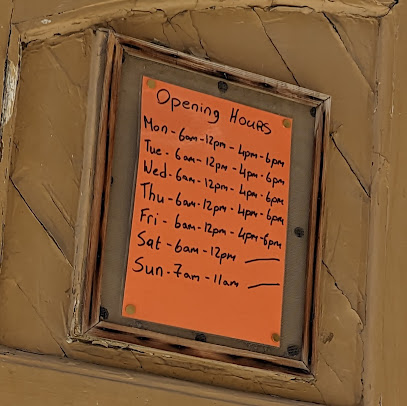 Opening Hours
Mon - 6am - 12pm - 4pm - 6pm
Tue - 6am - 12pm - 4pm - 6pm
Wed - 6am - 12pm - 4pm - 6pm
Thu - 6am - 12pm - 4pm - 6pm
Fri - 6am - 12pm - 4pm - 6pm
Sat - 6am - 12pm —
Sun - 7am - 11am —